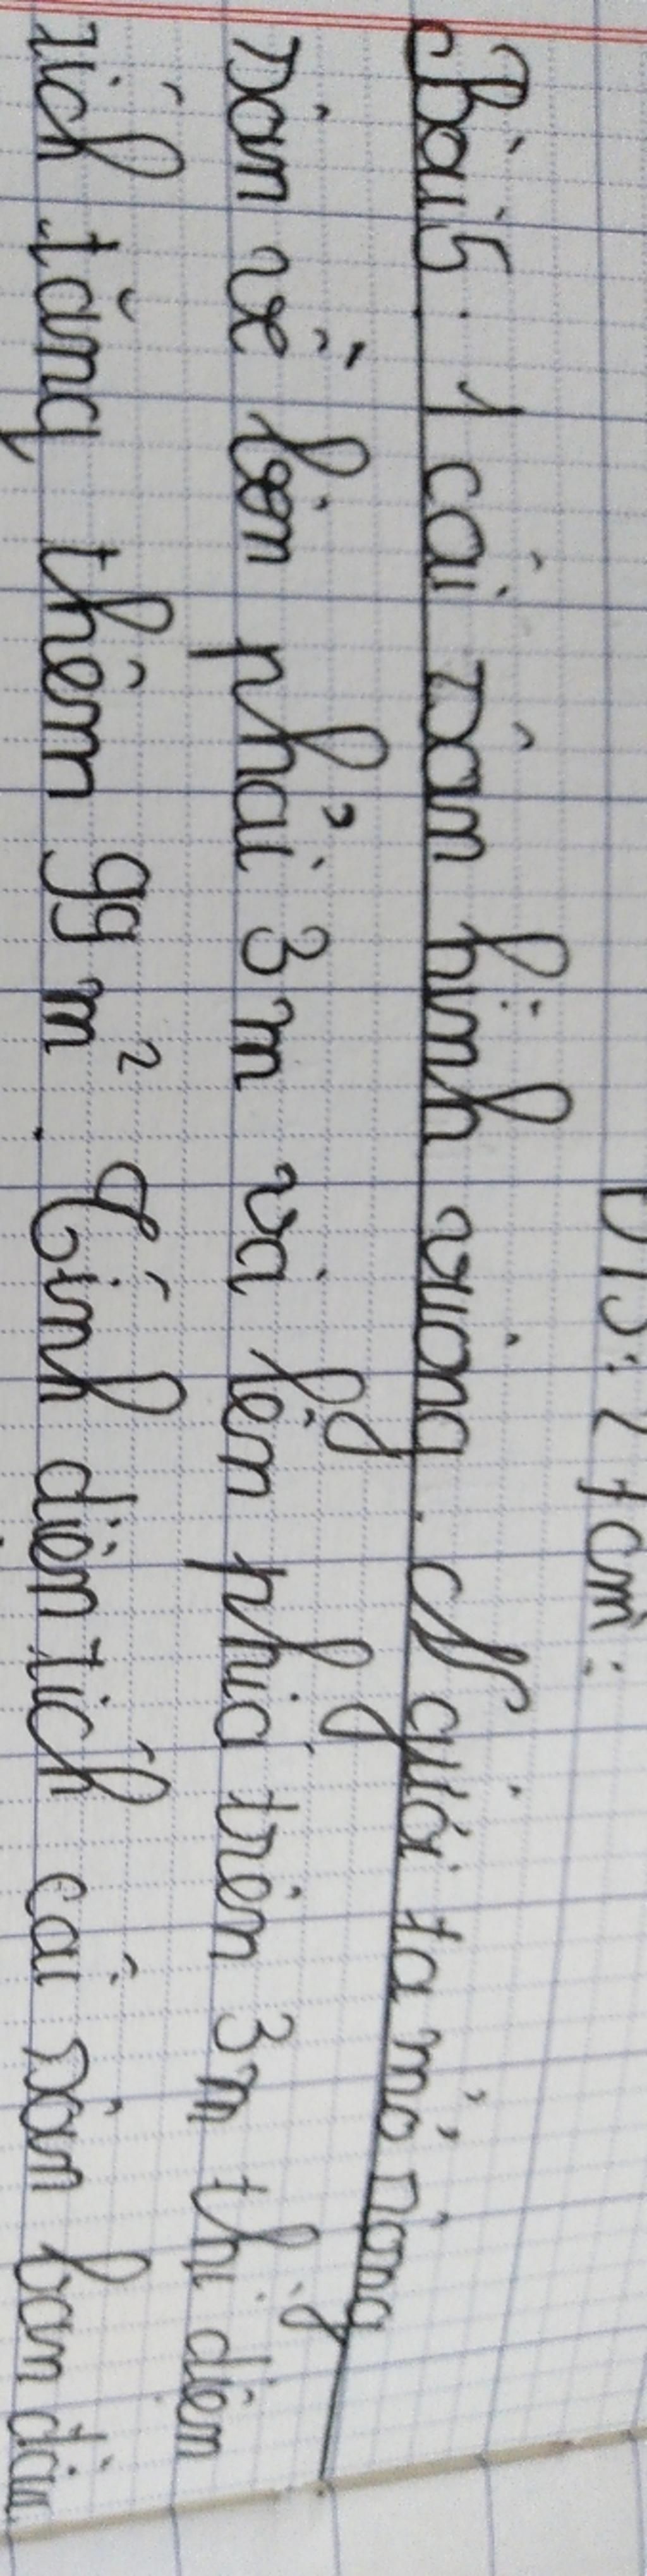 ĐS: 27 cm²
Bài 5. 1 cái sân hình vuông. Người ta mở rộng
sân về bên phải 3 m và lên phía trên 3m thì diện
tích tăng thêm 99 m². Tính diện tích cái sân ban đầu